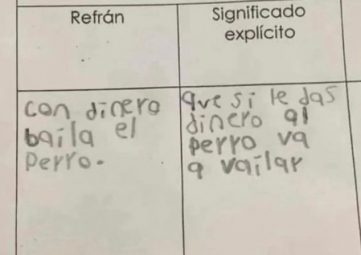 Refrán
Significado
explícito
con dinero
baila el
perro.
que si le das
dinero al
perro va
a vailar